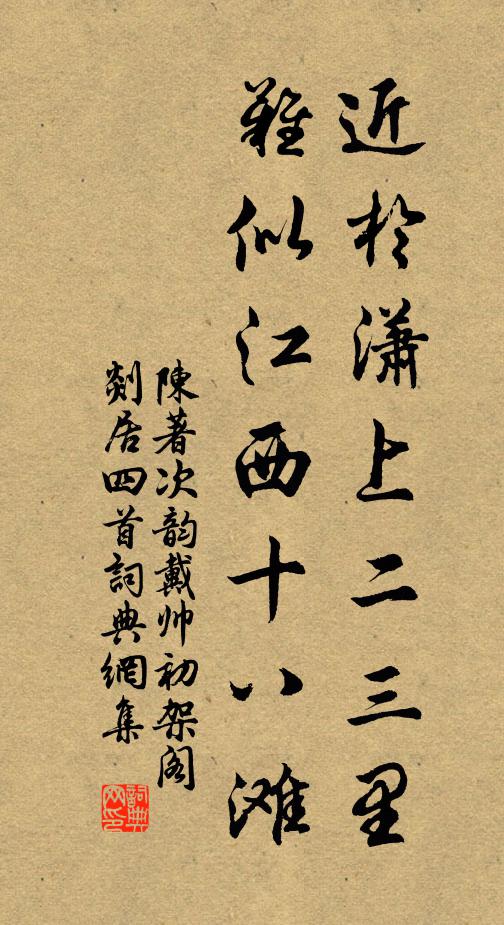 近於瀟上二三里
難似江西十八滩
陳著次韵戴帅初架阁
剡居四首詞典網集
詞典网印